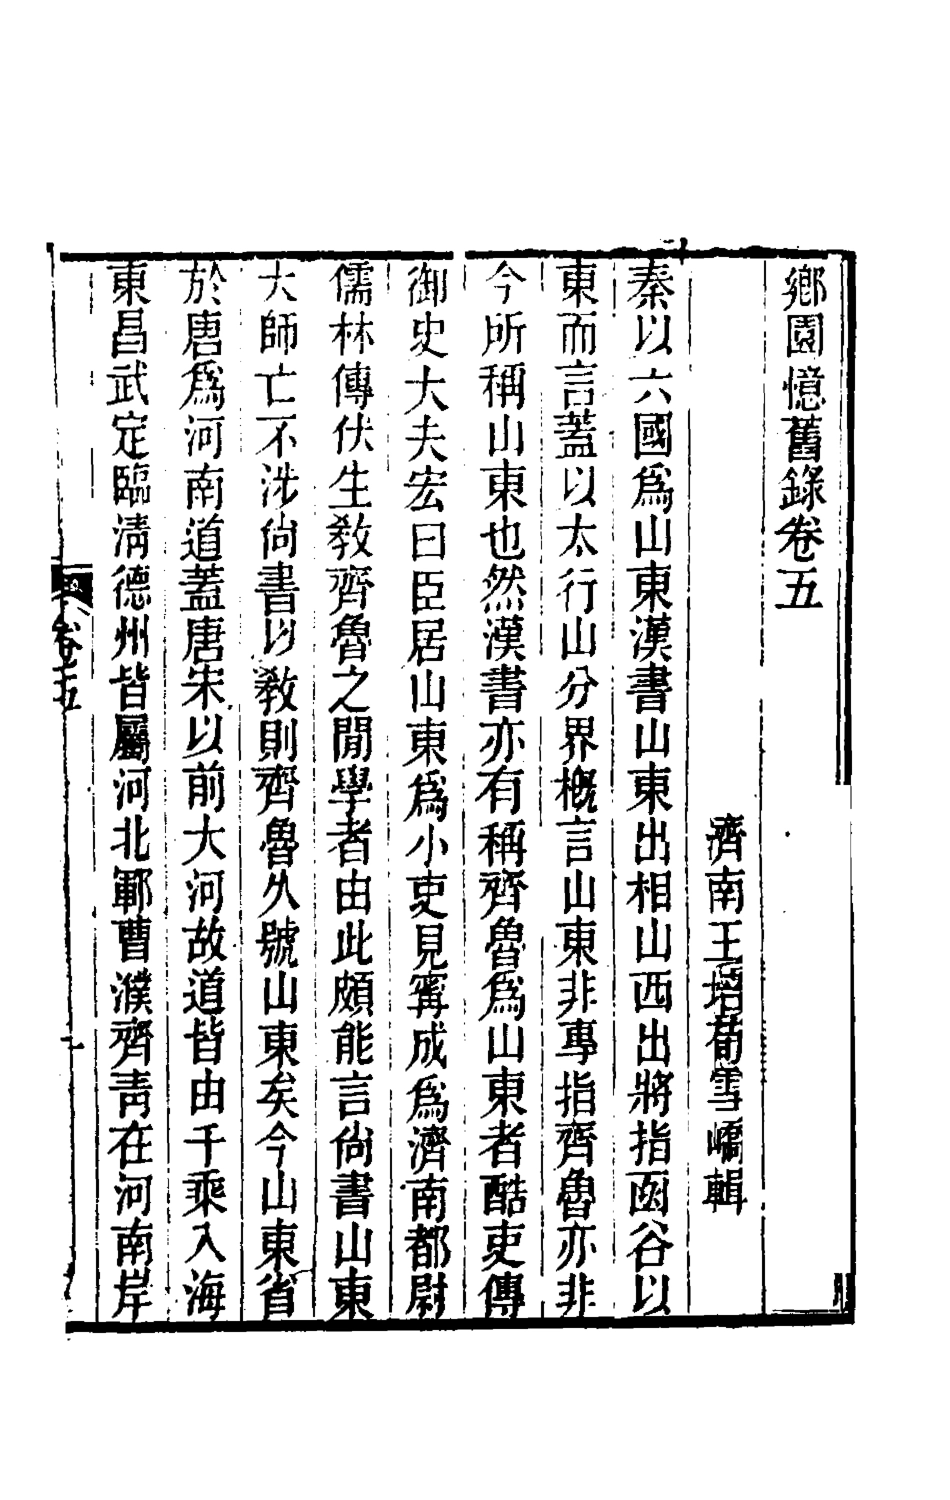 鄉園憶舊錄卷五
濟南王培荀雪嶠輯
秦以六國爲山東漢書山東出相山西出將指函谷以
東而言蓋以太行山分界槪言山東非專指齊魯亦非
今所稱山東也然漢書亦有稱齊魯爲山東者酷吏傳
御史大夫宏曰臣居山東爲小吏見甯成爲濟南都尉
儒林傳伏生敎齊魯之閒學者由此頗能言尙書山東
大師亡不涉尙書以敎則齊魯久號山東矣今山東省
於唐爲河南道蓋唐宋以前大河故道皆由千乘入海
東昌武定臨淸德州皆屬河北鄆曹濮齊靑在河南岸
卷五
一